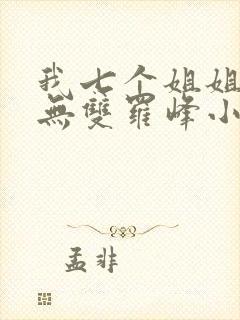 我七个姐姐
無雙羅峰小
孟非